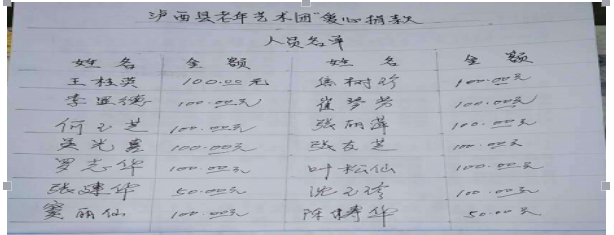 泸西县老年艺术团"爱心捐款
人员名单
姓名 金额 姓名 金额
王桂英 100.00元 树珍 100.00元
李 德 100.00元 崔琴芳 100.00元
何玉芝 100.00元 张丽萍 100.00元
吴光真 100.00元 张友芝 100.00元
罗志华 100.00元 叶松仙 100.00元
张建华 50.00元 沈玉珍 100.00元
窦丽仙 100.00元 陈 华 50.00元